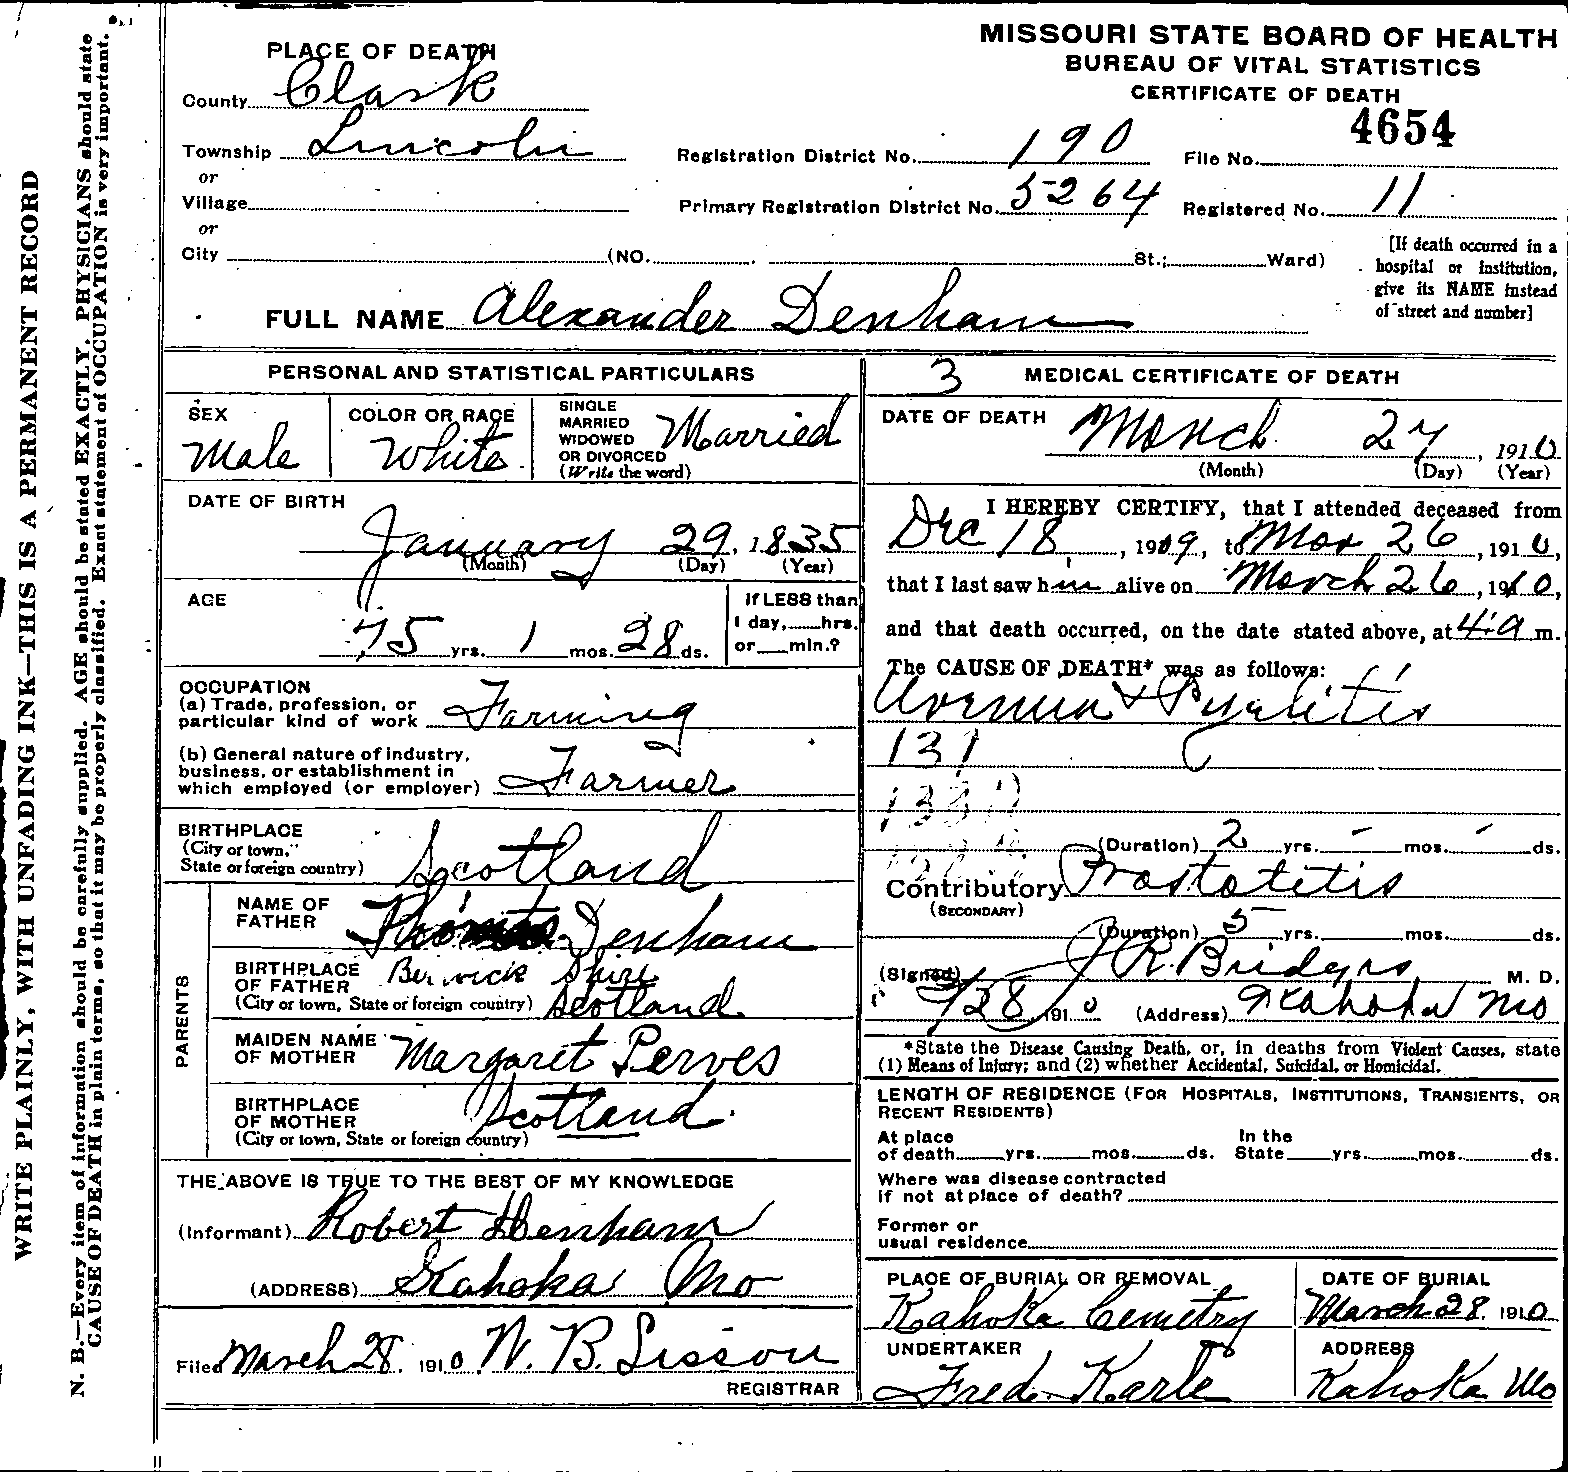 MISSOURI STATE BOARD OF HEALTH
BUREAU OF VITAL STATISTICS
CERTIFICATE OF DEATH
PLACE OF DEATH
County Clark
Township Lincoln
or
Village
or
City (NO. St.; Ward)
Registration District No. 190 File No. 4654
Primary Registration District No. 5264 Registered No. 11
[If death occurred in a
hospital or institution,
give its NAME instead
of street and number]
FULL NAME Alexander Denham
PERSONAL AND STATISTICAL PARTICULARS
SEX Male
COLOR OR RACE White
SINGLE
MARRIED
WIDOWED
OR DIVORCED
(Write the word) Married
DATE OF BIRTH
January 29, 1835
(Month) (Day) (Year)
AGE
75 yrs. 1 mos. 28 ds.
If LESS than
1 day, hrs.
or min.?
OCCUPATION
(a) Trade, profession, or
particular kind of work Farming
(b) General nature of industry,
business, or establishment in
which employed (or employer) Farmer
BIRTHPLACE
(City or town,
State or foreign country) Scotland
PARENTS
NAME OF
FATHER Denham
BIRTHPLACE
OF FATHER Berwick Shire
(City or town, State or foreign country) Scotland
MAIDEN NAME
OF MOTHER Margaret Perves
BIRTHPLACE
OF MOTHER
(City or town, State or foreign country) Scotland
THE ABOVE IS TRUE TO THE BEST OF MY KNOWLEDGE
(Informant) Robert Denham
(ADDRESS) Kahoka Mo
Filed March 28, 1910 W. B. Sisson
REGISTRAR
3 MEDICAL CERTIFICATE OF DEATH
DATE OF DEATH March 27, 1910
(Month) (Day) (Year)
I HEREBY CERTIFY, that I attended deceased from
Dec 18, 1909, to Mar 26, 1910,
that I last saw him alive on March 26, 1910,
and that death occurred, on the date stated above, at 4 a m.
The CAUSE OF DEATH* was as follows:
Uremia & Pyelitis
131
(Duration) 2 yrs. - mos. - ds.
Contributory Prostatitis
(SECONDARY)
(Duration) 5 yrs. mos. ds.
(Signed) J R Bridges M. D.
3/28 1910 (Address) Kahoka Mo
*State the Disease Causing Death, or, in deaths from Violent Causes, state
(1) Means of Injury; and (2) whether Accidental, Suicidal, or Homicidal.
LENGTH OF RESIDENCE (FOR HOSPITALS, INSTITUTIONS, TRANSIENTS, OR
RECENT RESIDENTS)
At place In the
of death yrs. mos. ds. State yrs. mos. ds.
Where was disease contracted
if not at place of death?
Former or
usual residence
PLACE OF BURIAL OR REMOVAL
Kahoka Cemetry
DATE OF BURIAL
March 28 1910
UNDERTAKER
Fred Karle
ADDRESS
Kahoka Mo
WRITE PLAINLY, WITH UNFADING INK—THIS IS A PERMANENT RECORD
N. B.—Every item of information should be carefully supplied. AGE should be stated EXACTLY. PHYSICIANS should state
CAUSE OF DEATH in plain terms, so that it may be properly classified. Exact statement of OCCUPATION is very important.